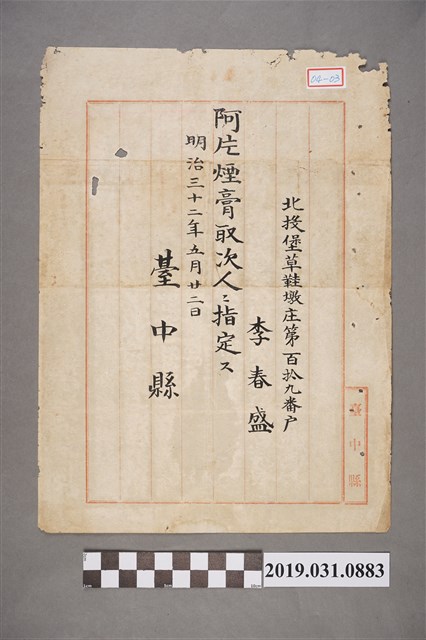 04-03
北投堡草鞋墩庄第百拾九番戶
李春盛
阿片煙膏取次人ニ指定ス
明治三十二年五月廿二日
臺中縣
臺中縣
2019.031.0883